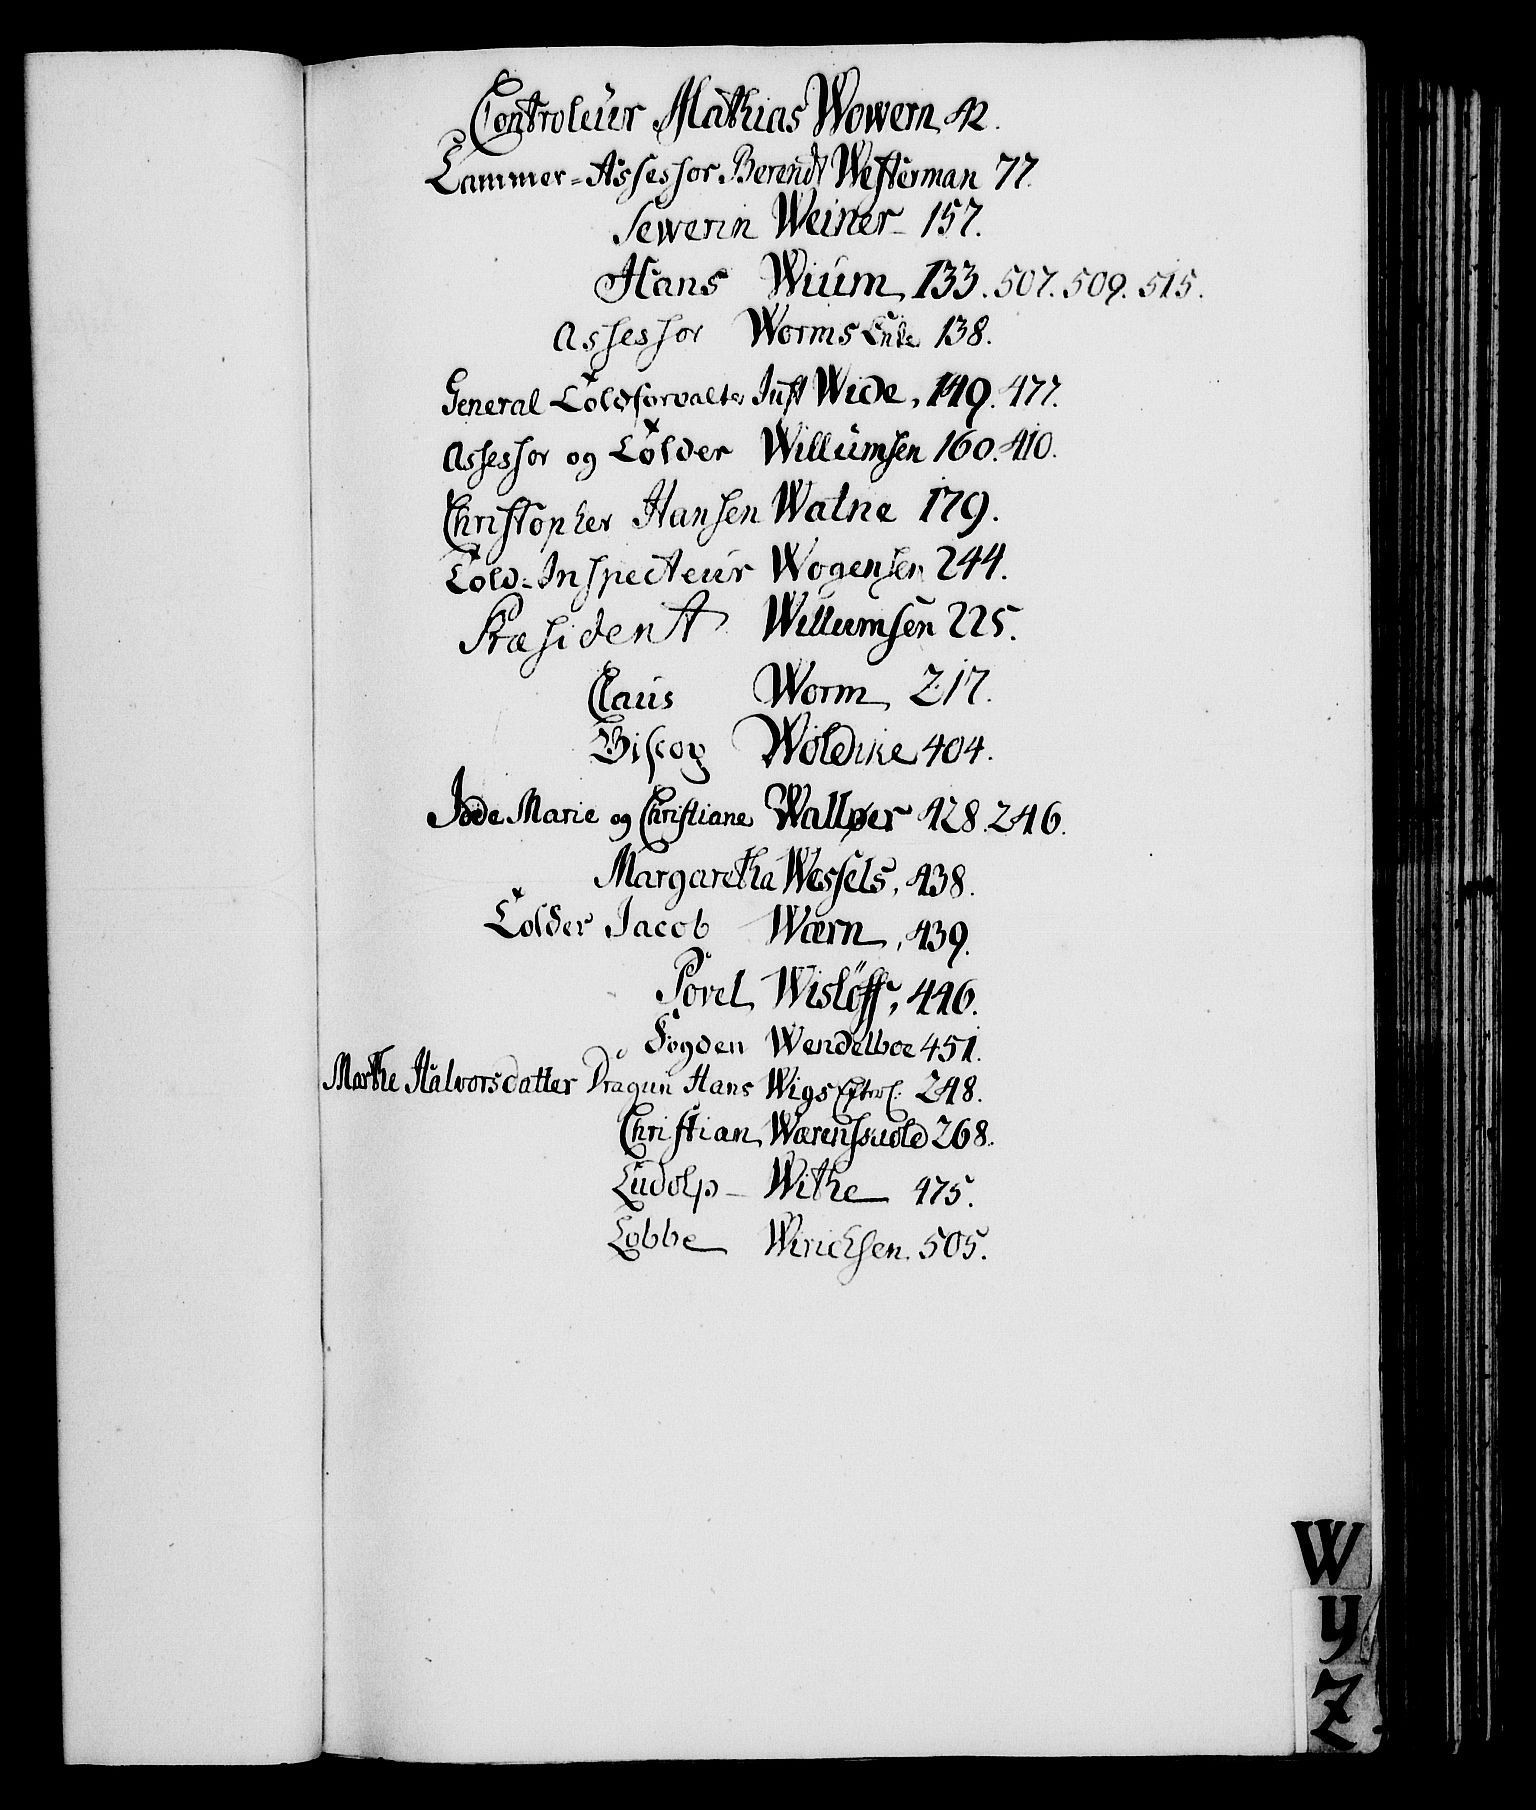 Controleur Mathias Wowern 42.
Cammer-Assessor Berendt Westerman 77.
Sewerin Weiner 157.
Hans Wium, 133. 507. 509. 515.
Assessor Worms Enke 138.
General Toldforvalter Just Wide, 149. 477.
Assessor og Tolder Willumsen 160. 410.
Christopher Hansen Watne 179.
Told-Inspecteur Wogensen 244.
Præsident Willumsen 225.
Claus Worm 217.
Biscop Wöldike 404.
Marie og Christiane Walløer 428. 246.
Margaretha Wessels, 438.
Tolder Jacob Wærn, 439.
Povel Wislöff, 446.
Fogden Wendelboe 451.
Marthe Halvorsdatter Dragun Hans Wigs Efterl: 248.
Christian Wærenskiold 268.
Ludolp Withe 475.
Lobbe Wirichsen. 505.
W
Y
Z